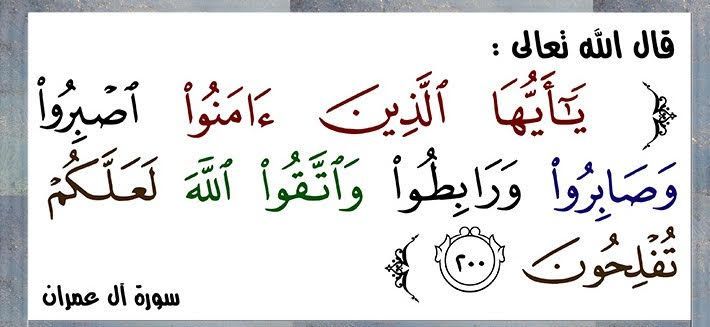 قال الله تعالى :
﴿ يَـٰٓأَيُّهَا ٱلَّذِينَ ءَامَنُوا۟ ٱصْبِرُوا۟
وَصَابِرُوا۟ وَرَابِطُوا۟ وَٱتَّقُوا۟ ٱللَّهَ لَعَلَّكُمْ
تُفْلِحُونَ ٢٠٠ ﴾
سورة آل عمران